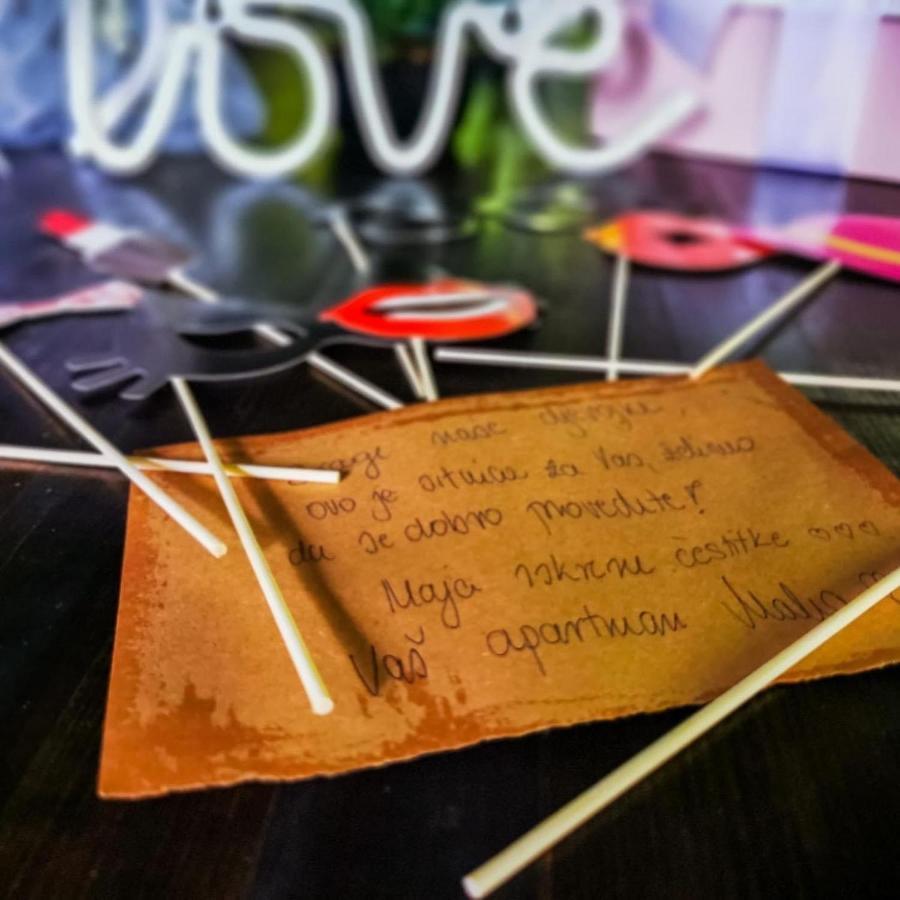 love
naše djevojke,
ovo je sitnica za Vas, želimo
da se dobro provedete!
Maja iskrene čestitke ♡♡♡
Vaš apartman